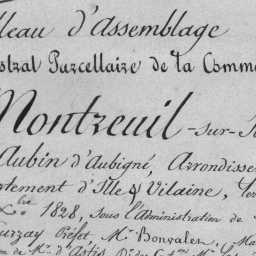 leau d'Assemblage
stral Parcellaire de la Comm
Montreuil -sur-
Aubin d'Aubigné, Arrondisse
rtement d'Ille & Vilaine, Ter
1828, sous l'Administration de
urzay Préfet M. Bonvalen, Ma